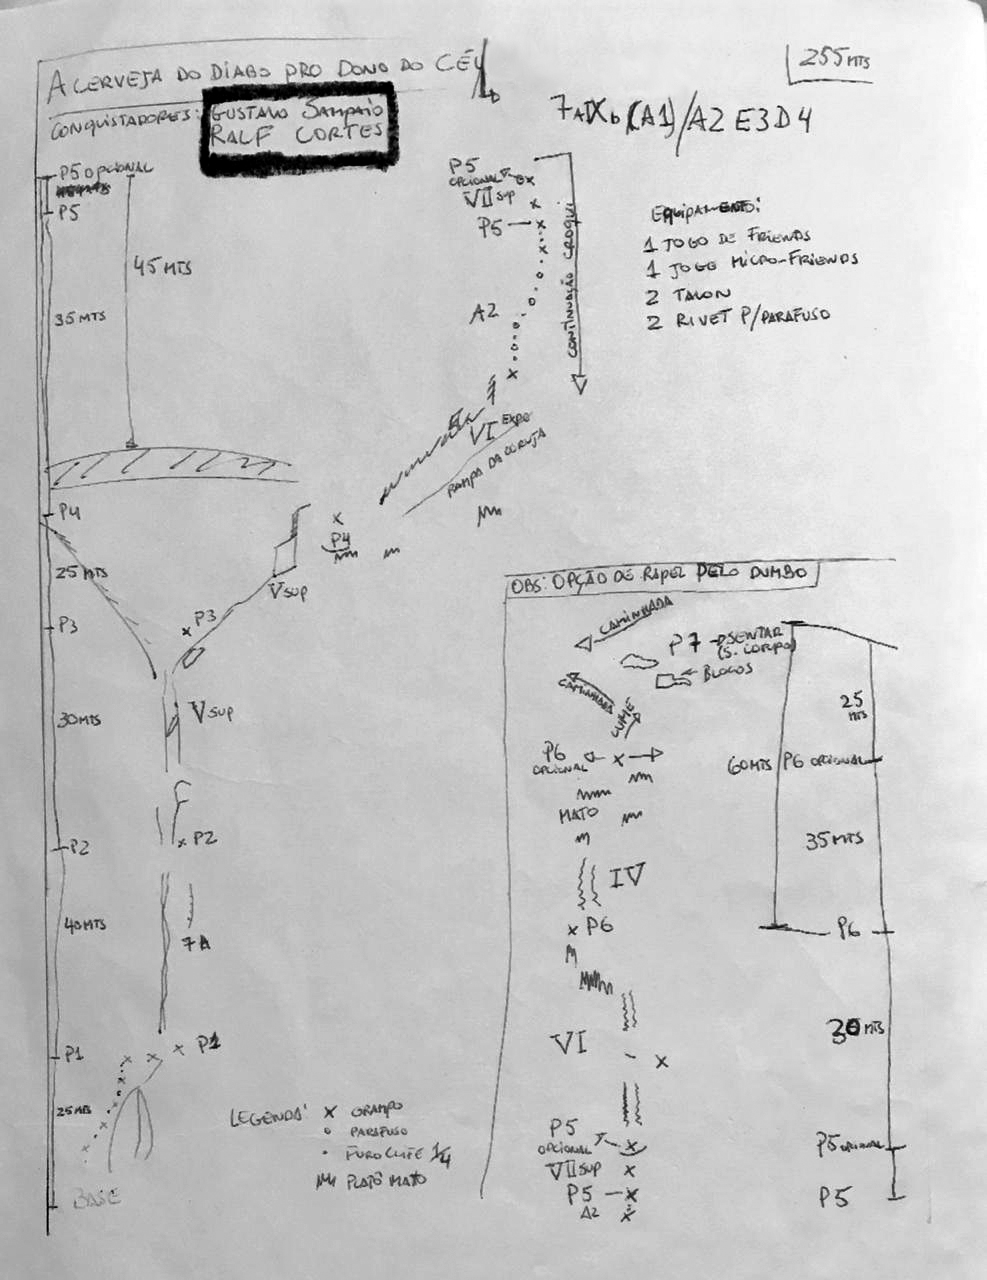 A CERVEJA DO DIABO PRO DONO DO CÉU
255 MTS
CONQUISTADORES: GUSTAVO SAMPAIO
RALF CORTES
P5 OPCIONAL
P5
45 MTS
35 MTS
P4
25 MTS
P3
30MTS
P2
40MTS
P1
25MTS
BASE
P5
OPCIONAL
VII SUP
P5
A2
CONTINUAÇÃO CROQUI
VI EXPO
RAMPA DA CORUJA
P4
V SUP
P3
V SUP
P2
7A
P1
EQUIPAMENTO:
1 JOGO DE FRIENDS
1 JOGO MICRO-FRIENDS
2 TALON
2 RIVET P/PARAFUSO
LEGENDA:
X GRAMPO
o PARAFUSO
. FURO CLIFF 1/4
PLATÔ MATO
OBS: OPÇÃO DE RAPEL PELO DUMBO
CAMINHADA
P7
(S. CORPO)
BLOCOS
CAMINHADA
CUME
P6
OPCIONAL
MATO
IV
P6
VI
P5
OPCIONAL
VII SUP
P5
A2
25
MTS
60MTS
P6 OPCIONAL
35MTS
P6
30 MTS
P5 OPCIONAL
P5